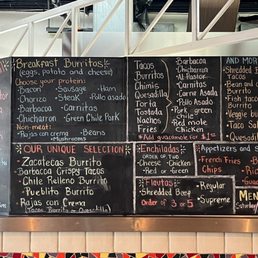 Breakfast Burritos
(eggs, potato and cheese)
Choose your protein:
Bacon Sausage Ham
Chorizo Steak Pollo asado
Barbacoa Carnitas
Chicharron Green Chile Pork
Non-meat:
Rajas con crema Beans
Mushrooms
OUR UNIQUE SELECTION
Zacatecas Burrito
Barbacoa Crispy Tacos
Chile Relleno Burrito
Pueblito Burrito
Rajas con Crema
(Tacos, Burrito or Quesadilla)
Tacos
Burritos
Chimis
Quesadilla
Torta
Tostada
Nachos
Fries
Barbacoa
Chicharron
Al-Pastor
Carnitas
Carne Asada
Pollo Asado
Pork green
chile
Red mole
Chicken
Add guacamole for $1
Enchiladas
ORDER OF TWO
Cheese Chicken
Red or Green
Flautas
Shredded Beef
Order of 3 or 5
Regular
Supreme
AND MOR
Shredded B
Tacos
Bean
Fish tacos
Burritos
Veggie bu
Tacos
Appetizers and S
French Fries
Chips
MEN